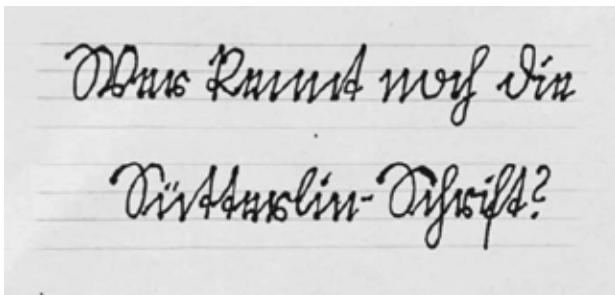 Wer kennt noch die
Sütterlin-Schrift?